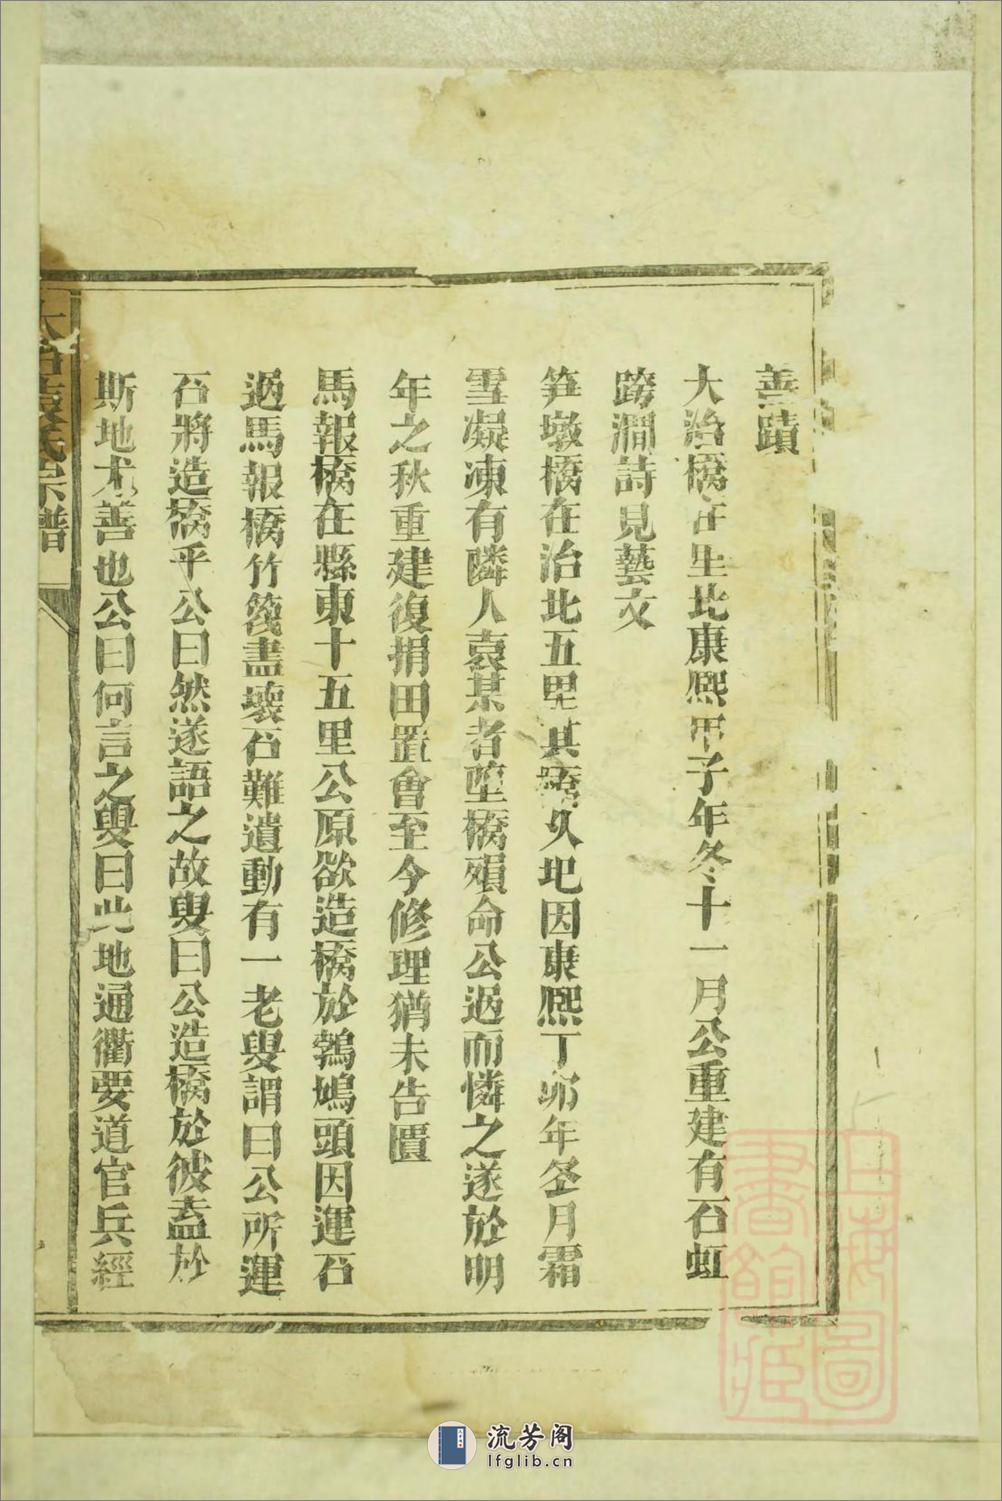 善蹟
大治橋在生北康熙甲子年冬十一月公重建有石虹
跨澗詩見藝文
笋墩橋在治北五里其橋久圯因康熙丁卯年冬月霜
雪凝凍有隣人袁某者墮橋殞命公過而憐之遂於明
年之秋重建復捐田置會至今修理猶未告匱
馬報橋在縣東十五里公原欲造橋於鵓鳩頭因運石
過馬報橋竹筏盡壞石難遺動有一老叟謂曰公所運
石將造橋乎公曰然遂語之故叟曰公造橋於彼盍於
斯地尤善也公曰何言之叟曰此地通衢要道官兵經
氏宗譜
上海圖
書館藏
流芳阁
lfglib.cn